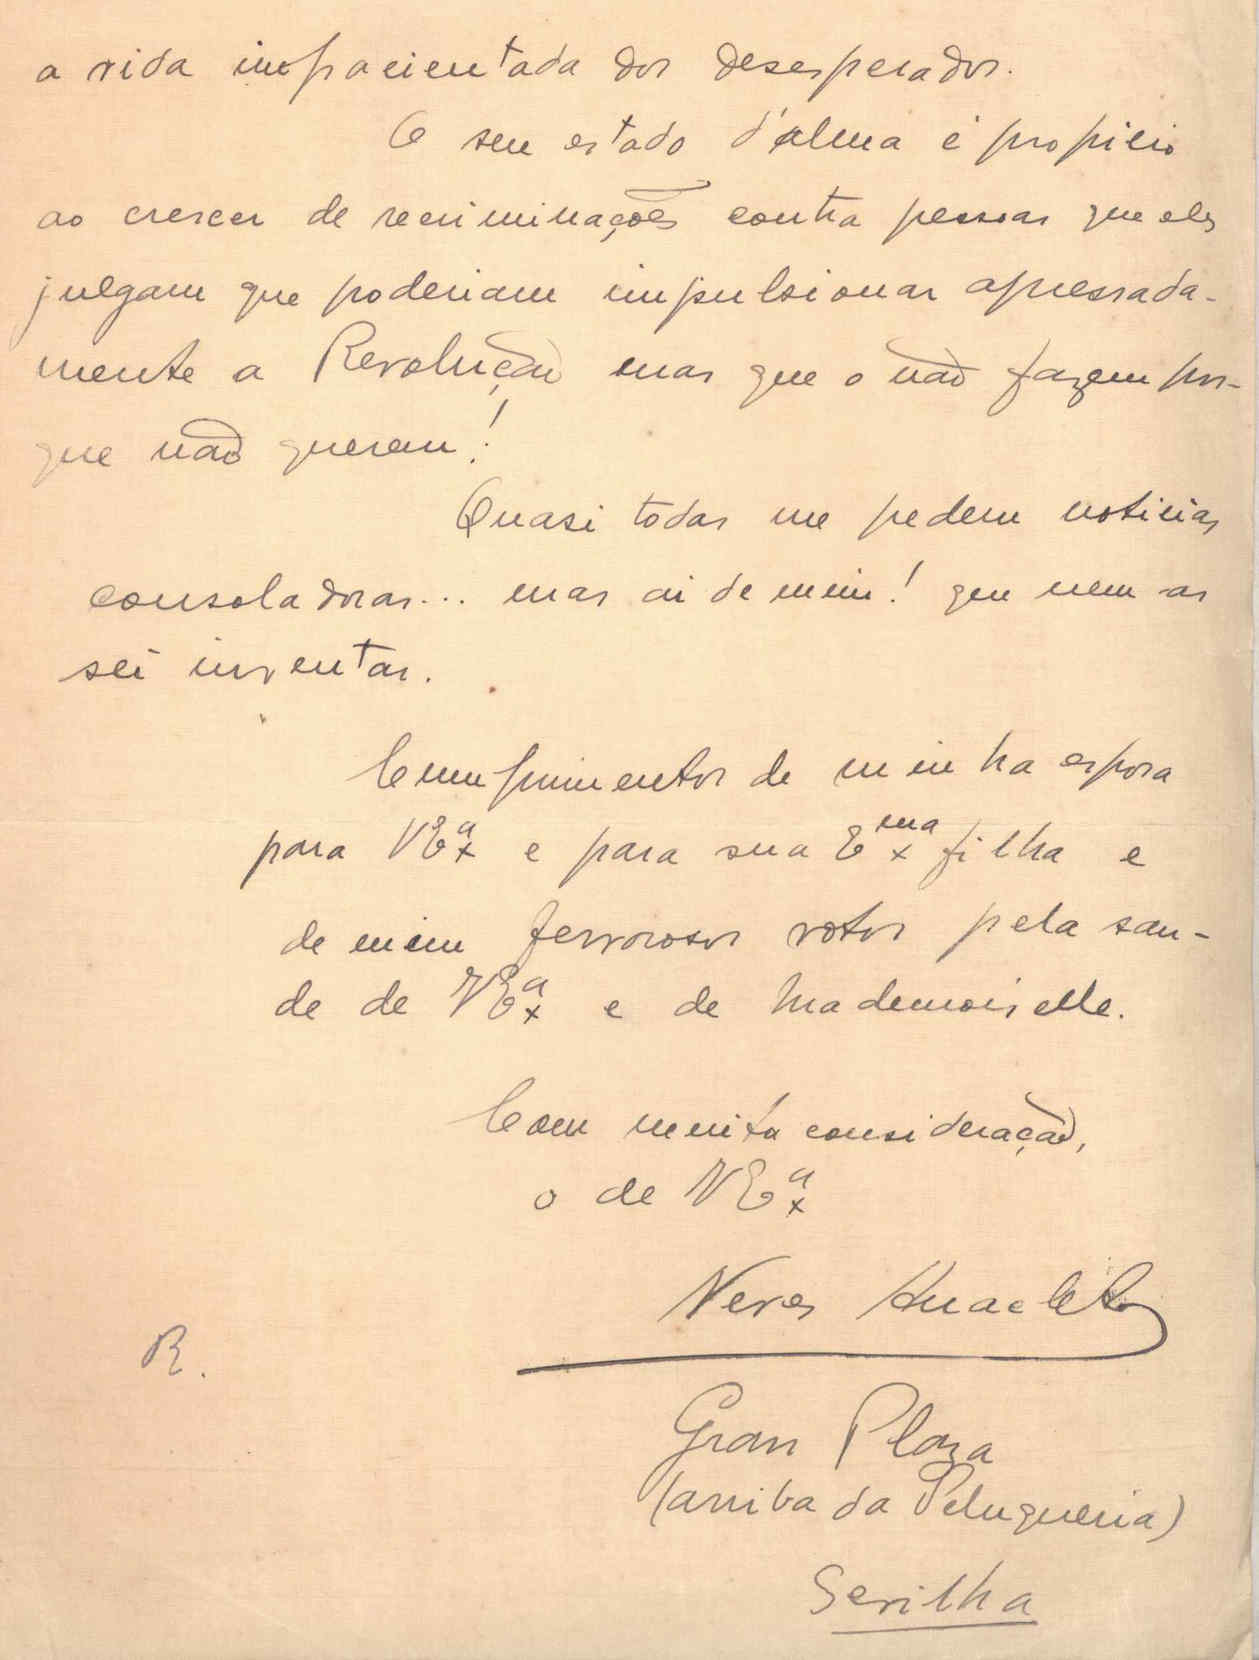 a vida impacientada dos desesperados.
O seu estado d'alma é propicio
ao crescer de recriminações contra pessoas que eles
julgam que poderiam impulsionar apressada-
mente a Revolução mas que o não fazem por-
que não querem!
Quasi todas me pedem noticias
consoladoras... mas ai de mim! que nem as
sei inventar.
Cumprimentos de minha esposa
para V Exª e para sua Exma filha e
de mim fervorosos votos pela sau-
de de V Exª e de Mademoiselle.
Com muita consideração,
o de V Exª
Neves Anacleto
R.
Gran Plaza
(arriba da Peluqueria)
Sevilha